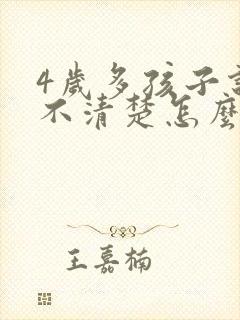 4歲多孩子
不清楚怎麼
王嘉楠